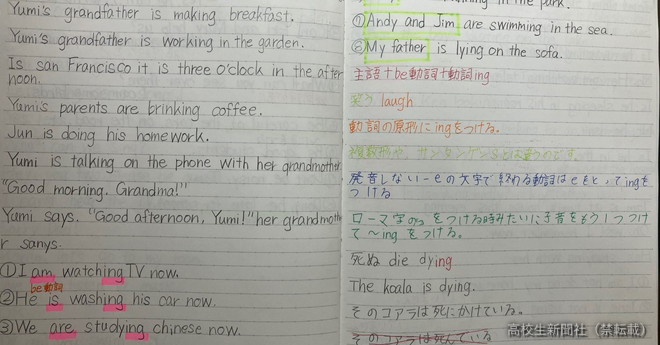 Yumi's grandfather is making breakfast.
Yumi's grandfather is working in the garden.
Is san Francisco it is three o'clock in the after
noon.
Yumi's parents are brinking coffee.
Jun is doing his homework.
Yumi is talking on the phone with her grandmother.
"Good morning. Grandma!"
Yumi says. "Good afternoon, Yumi!" her grandmothe
r sanys.
①I am watching TV now.
be動詞
②He is washing his car now.
③We are studying chinese now.
in the park.
①Andy and Jim are swimming in the sea.
②My father is lying on the sofa.
主語+be動詞+動詞ing
笑う laugh
動詞の原形にingをつける。
発音しない-eの文字で終わる動詞はeをとってingを
つける
ローマ字のっをつける時みたいに子音をもう1つつけ
て〜ingをつける。
死ぬ die dying
The koala is dying.
そのコアラは死にかけている。
そのコアラは死んでいる
高校生新聞社(禁転載)